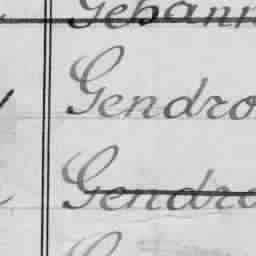 Gehann
Gendro
Gendro